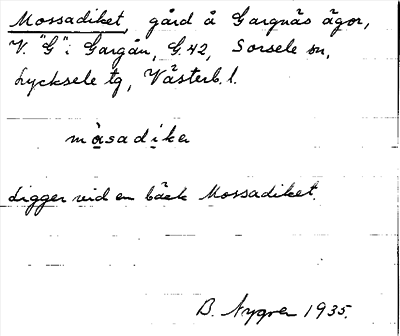 Mossadiket, gård å Gargnäs ägor,
V. "G" i Gargån, G. 42, Sorsele sn,
Lycksele tg, Västerb. l.
måsadika
Ligger vid en bäck Mossadiket.
B. Nygren 1935.